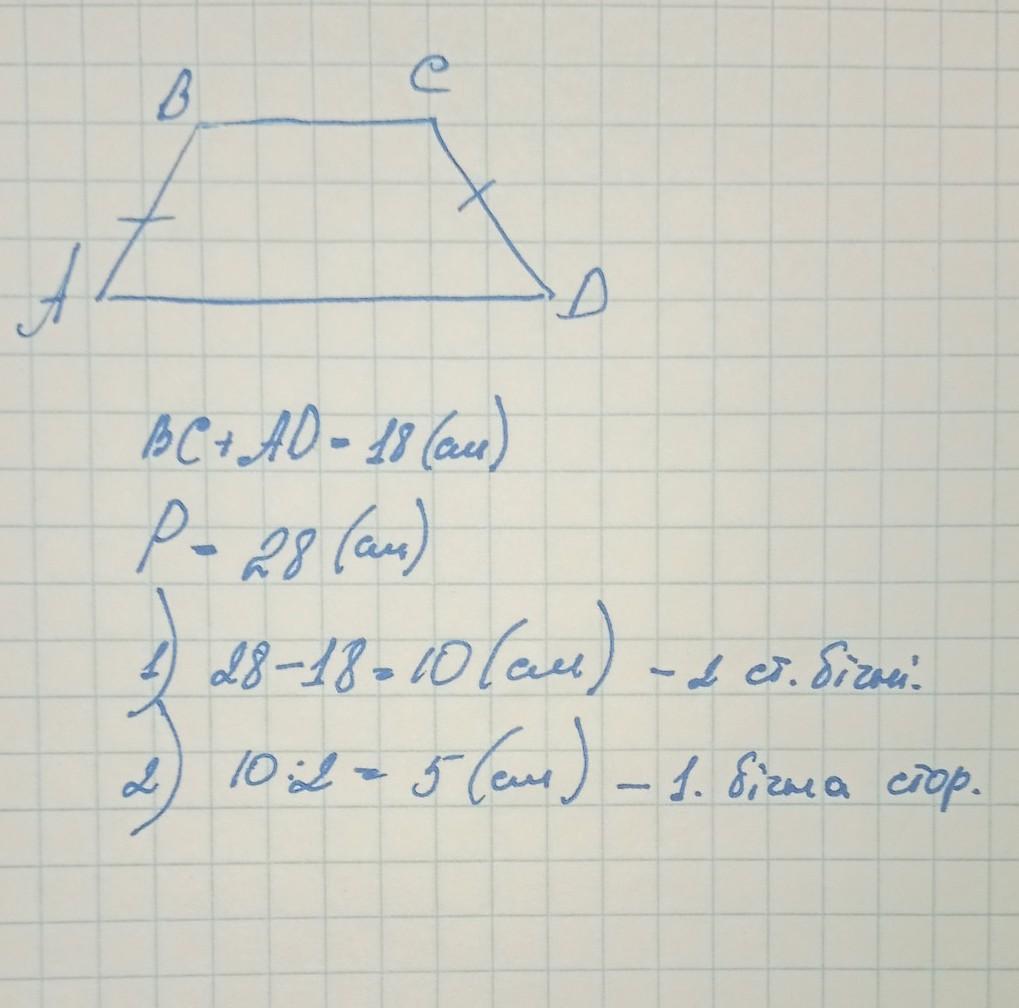 B C
A D
BC + AD = 18 (см)
P = 28 (см)
1) 28 - 18 = 10 (см) - 2 ст. бічні.
2) 10 : 2 = 5 (см) - 1. бічна стор.